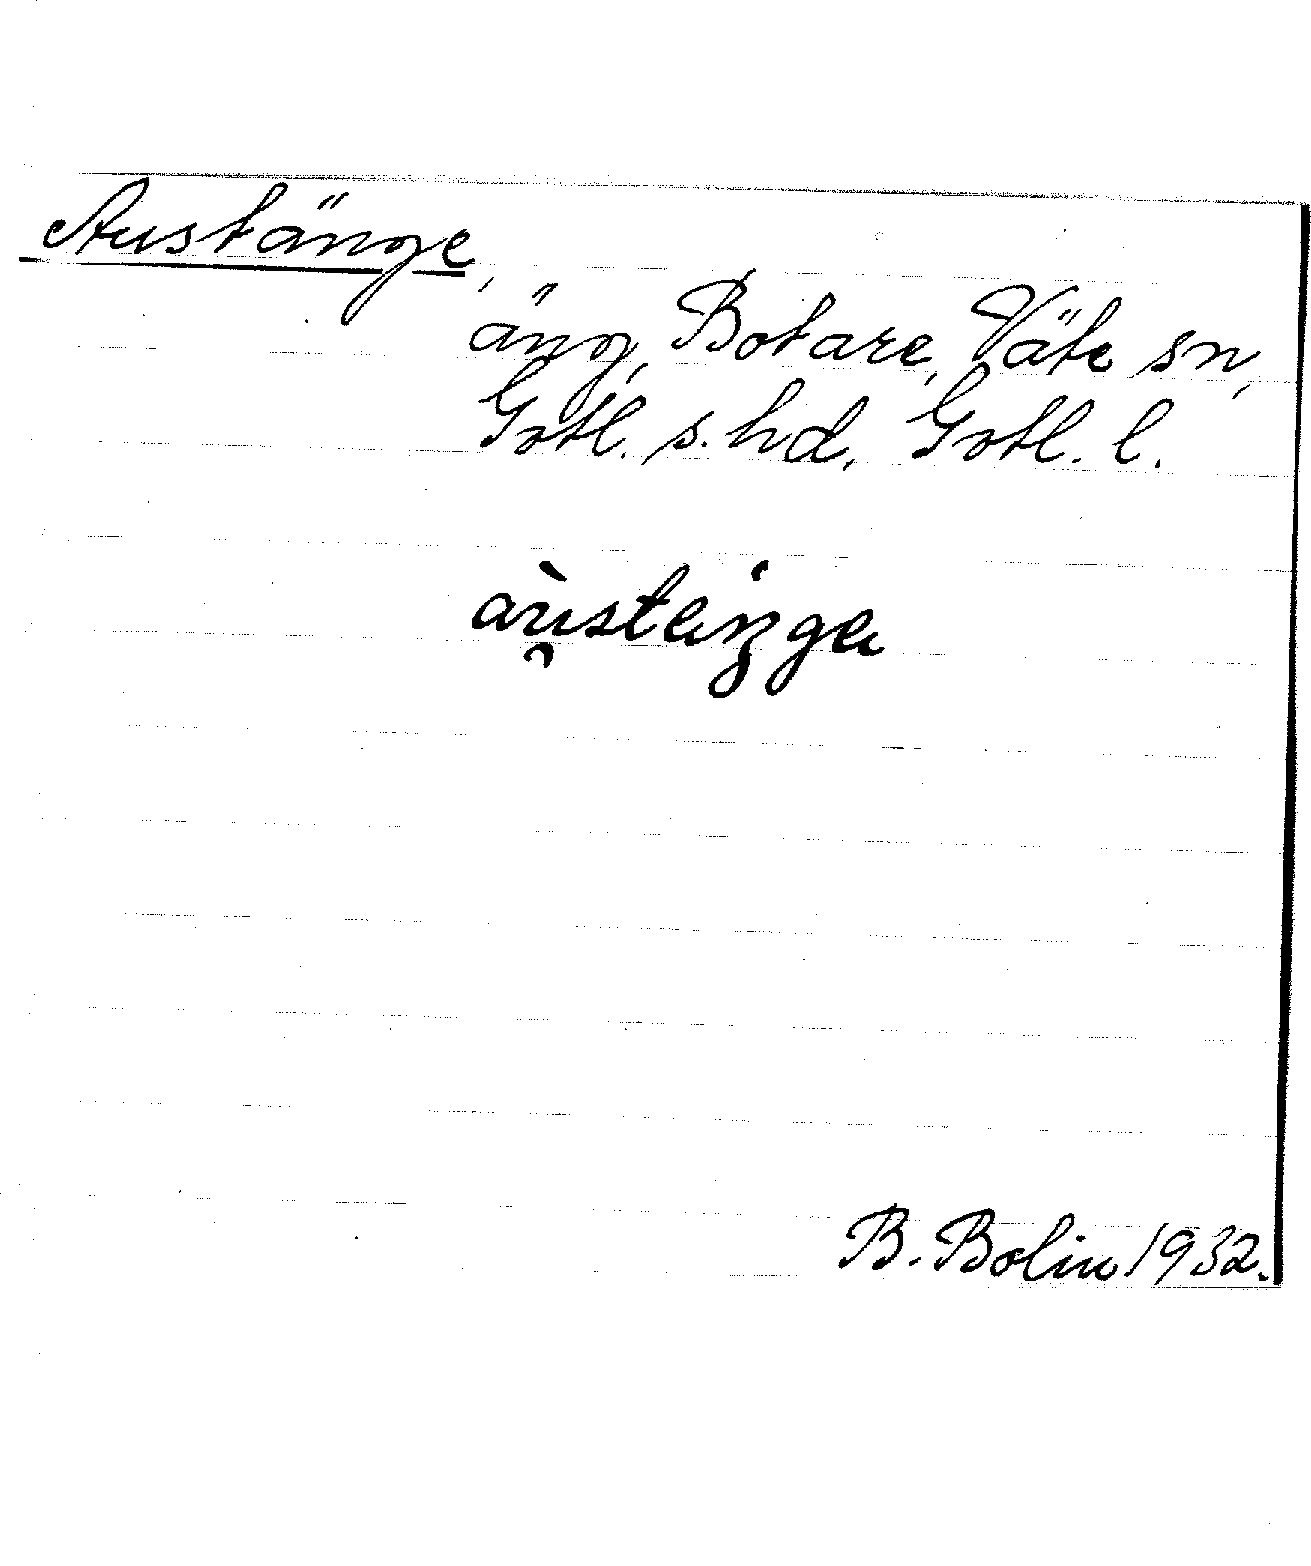 Austänge,
äng, Botare, Väte sn,
Gotl. s. hd, Gotl. l.
B. Bolin 1932.